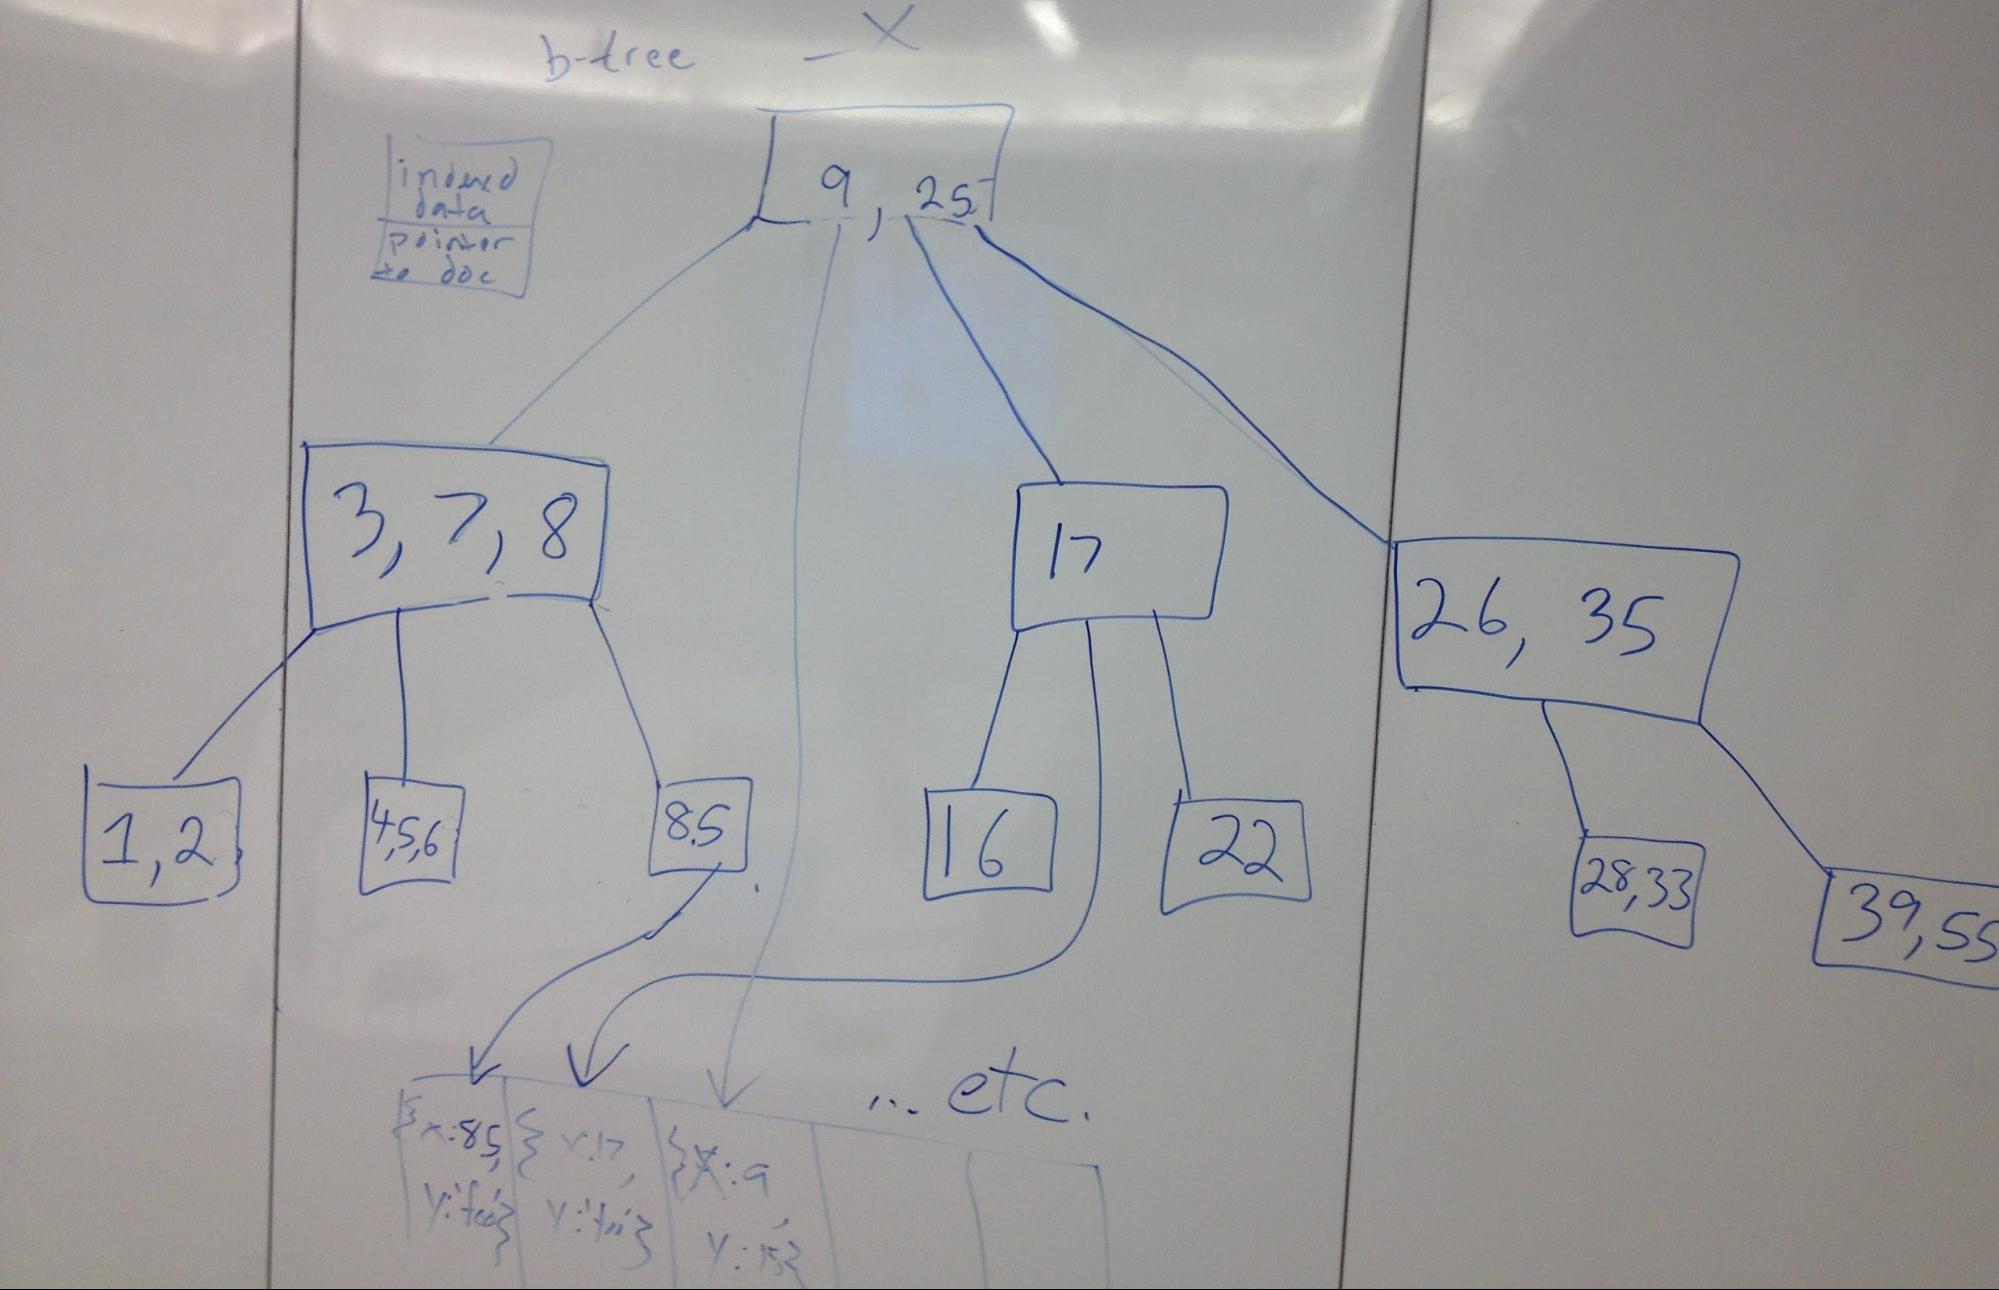 b-tree _ X
indexed
data
pointer
to doc
9, 25
3, 7, 8
17
26, 35
1, 2
4,5,6
8.5
16
22
28,33
39,55
... etc.
{x:8.5,
y:'foo'}
{x:17,
y:
{X:9,
y:15}